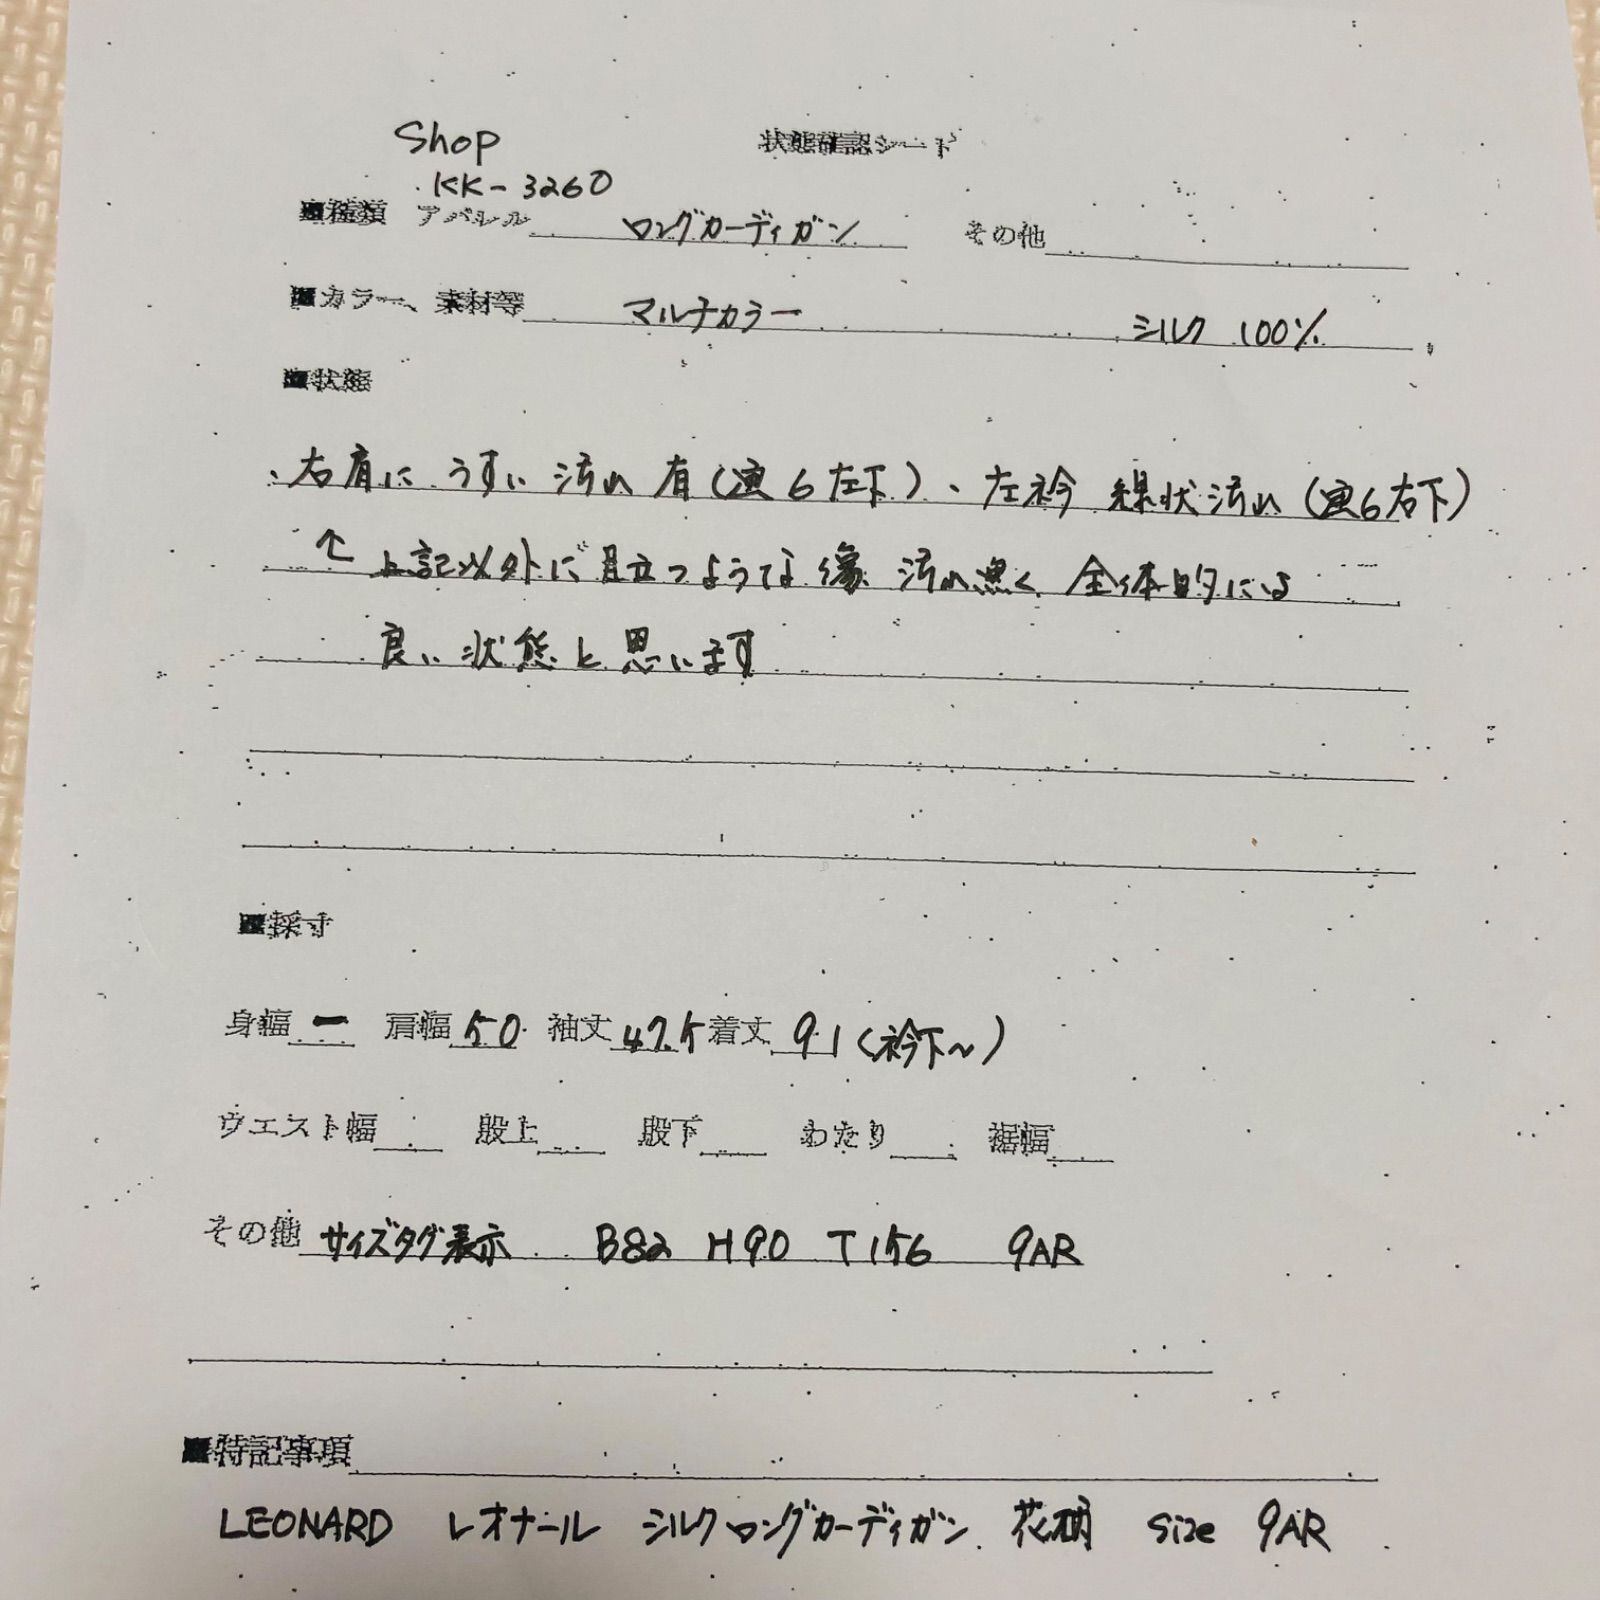 Shop 状態確認シート
KK-3260
■種類 アパレル ロングカーディガン その他
■カラー、素材等 マルチカラー シルク 100%
■状態
・右肩に うすい 汚れ 有(画6左下)、左衿 線状汚れ(画6右下)
↑ 上記以外に目立つような傷 汚れ無く 全体的には
良い状態と思います
■採寸
身幅 ー 肩幅 50 袖丈 47.5 着丈 91(衿下~)
ウエスト幅 股上 股下 わたり 裾幅
その他 サイズタグ表示 B82 H90 T156 9AR
■特記事項
LEONARD レオナール シルクロングカーディガン 花柄 size 9AR